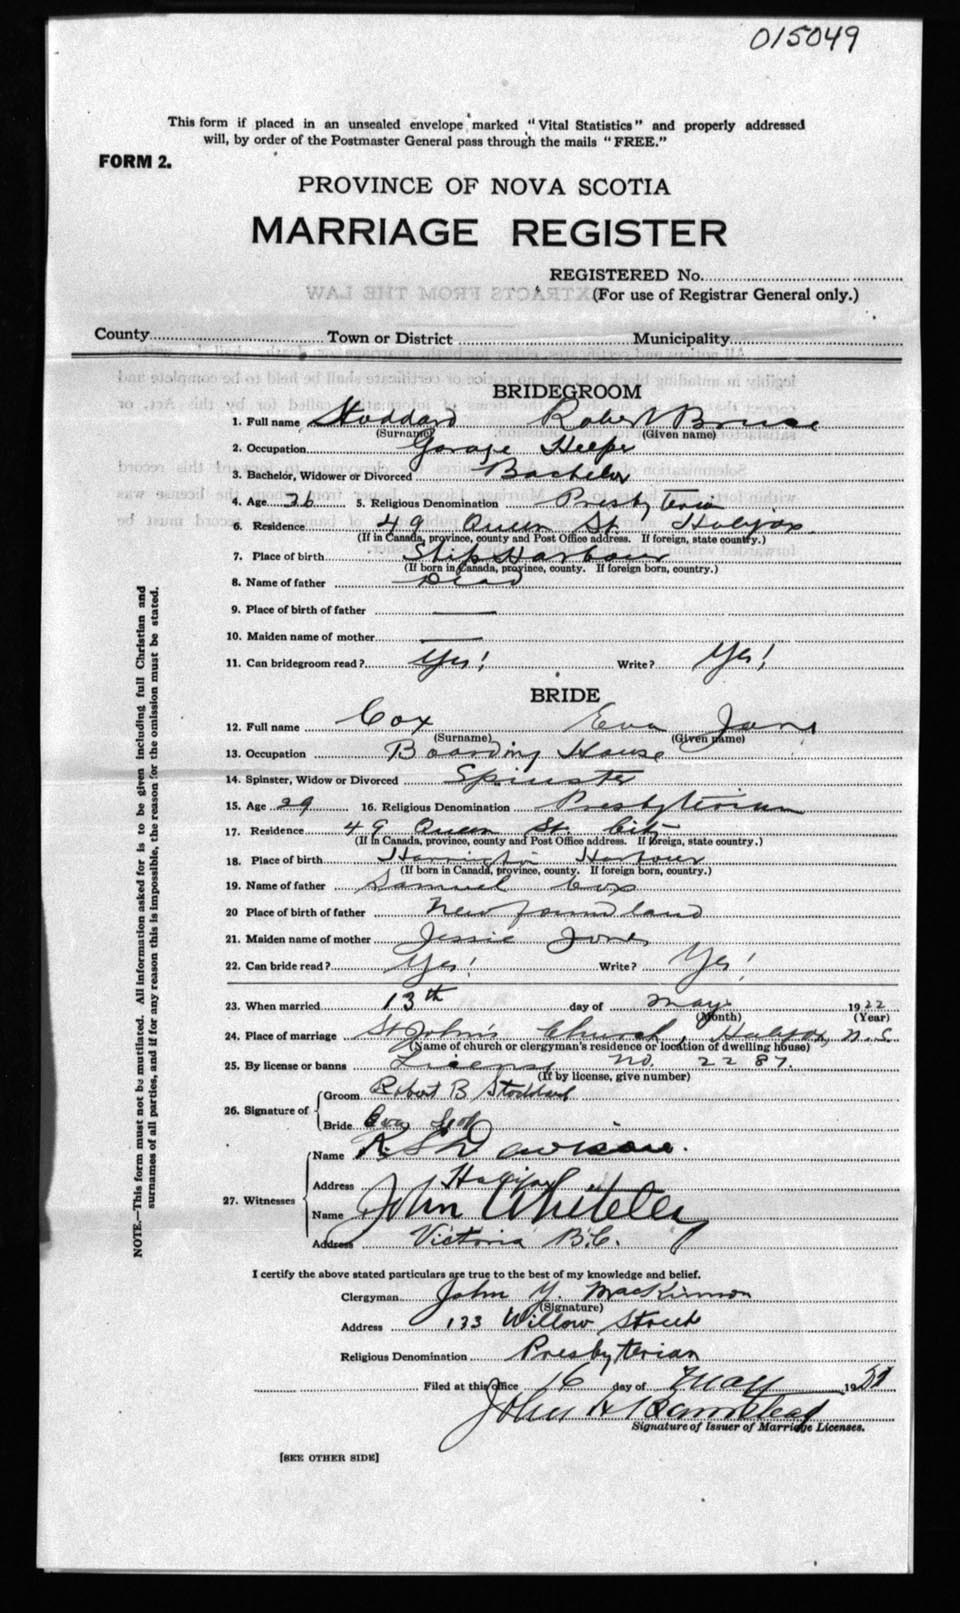 015049
This form if placed in an unsealed envelope marked "Vital Statistics" and properly addressed
will, by order of the Postmaster General pass through the mails "FREE."
FORM 2.
PROVINCE OF NOVA SCOTIA
MARRIAGE REGISTER
REGISTERED No.
(For use of Registrar General only.)
EXTRACTS FROM THE LAW
County Town or District Municipality
BRIDEGROOM
1. Full name Stoddard Robert Bruce
(Surname) (Given name)
2. Occupation Garage Keeper
3. Bachelor, Widower or Divorced Bachelor
4. Age 26 5. Religious Denomination Presbyterian
6. Residence 49 Queen St. Halifax
(If in Canada, province, county and Post Office address. If foreign, state country.)
7. Place of birth Ship Harbour
(If born in Canada, province, county. If foreign born, country.)
8. Name of father Dead
9. Place of birth of father —
10. Maiden name of mother —
11. Can bridegroom read? Yes! Write? Yes!
BRIDE
12. Full name Cox Eva Jane
(Surname) (Given name)
13. Occupation Boarding House
14. Spinster, Widow or Divorced Spinster
15. Age 29 16. Religious Denomination Presbyterian
17. Residence 49 Queen St. City
(If in Canada, province, county and Post Office address. If foreign, state country.)
18. Place of birth Harrington Harbour
(If born in Canada, province, county. If foreign born, country.)
19. Name of father Samuel Cox
20 Place of birth of father Newfoundland
21. Maiden name of mother Jessie Jones
22. Can bride read? Yes! Write? Yes!
23. When married 13th day of May 1922
(Month) (Year)
24. Place of marriage St John's Church, Halifax, N.S.
(Name of church or clergyman's residence or location of dwelling house)
25. By license or banns License No. 2287.
(If by license, give number)
26. Signature of Groom Robert B Stoddard
Bride Eva
27. Witnesses Name R. Davison.
Address Halifax
Name John Whiteley
Address Victoria B.C.
I certify the above stated particulars are true to the best of my knowledge and belief.
Clergyman John Y. MacKinnon
(Signature)
Address 133 Willow Street
Religious Denomination Presbyterian
Filed at this office 16 day of May 19
John
Signature of Issuer of Marriage Licenses.
[SEE OTHER SIDE]
NOTE.—This form must not be mutilated. All information asked for is to be given including full Christian and
surnames of all parties, and if for any reason this is impossible, the reason for the omission must be stated.